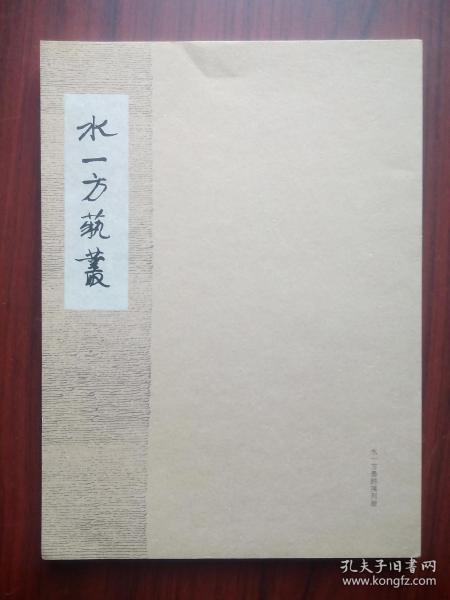 水一方藝叢
水一方艺术陈列馆
孔夫子旧书网
www.kongfz.com